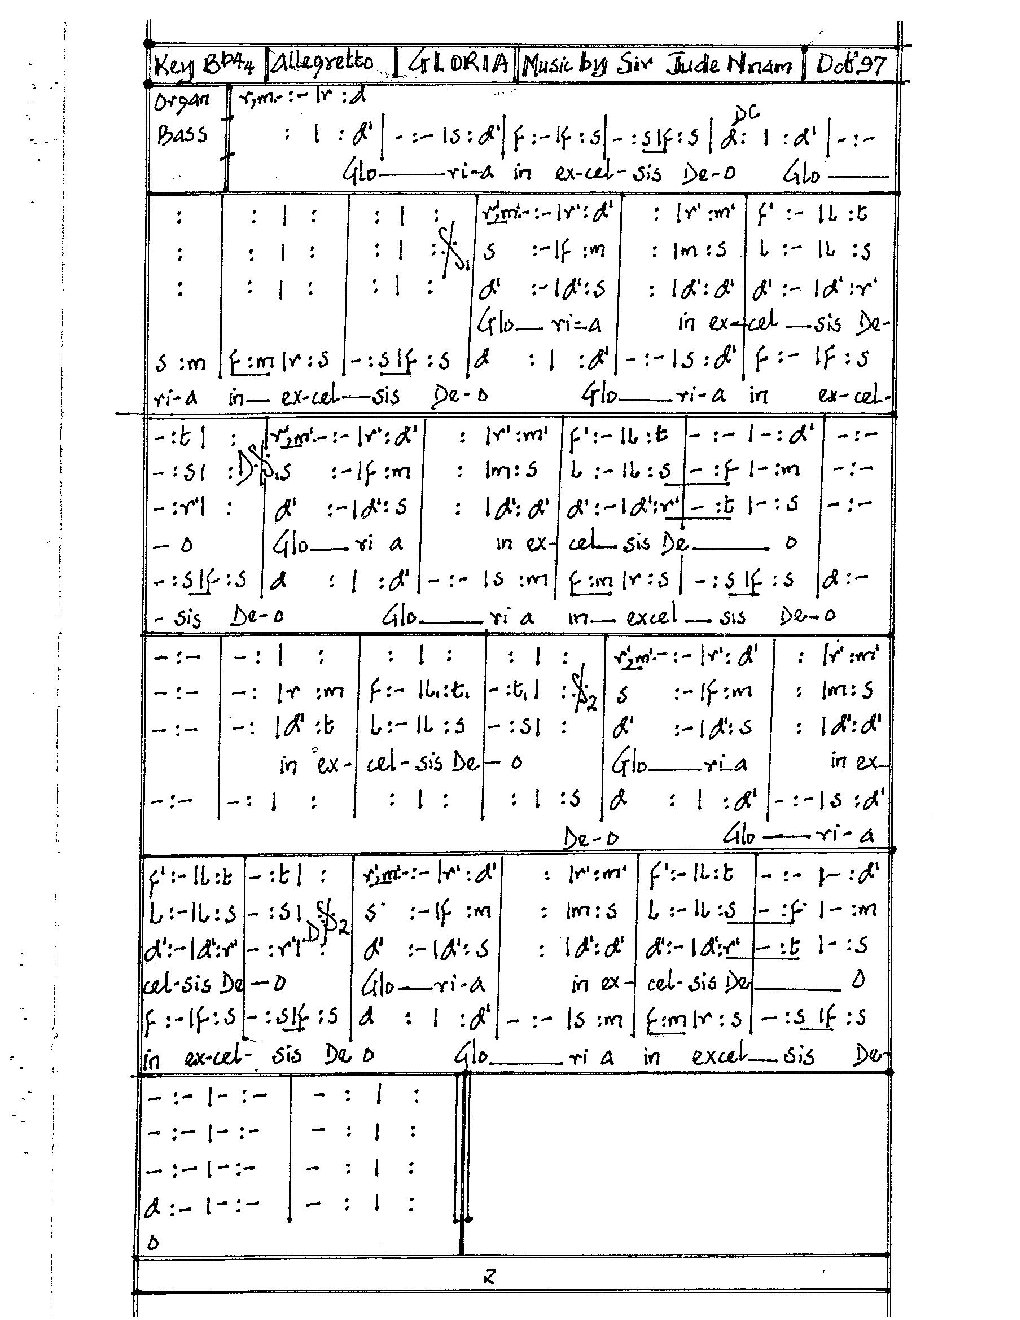 Key Bb 4/4 | Allegretto | GLORIA | Music by Sir Jude Nnam | Oct' 97
Organ r,m.-:-|r:d
DC
Bass : | :d'|-:-|s:d'|f:-|f:s|-:s|f:s|d: | :d'|-:-
Glo___ri-a in ex-cel-sis De-o Glo___
: | : | : | : | : |r',m'.-:-|r':d'| : |r':m'|f':-|l:t
: | : | : | : | : S1 |s :-|f:m| : |m:s|l:-|l:s
: | : | : | : | : |d' :-|d':s| : |d':d'|d':-|d':r'
Glo__ri-a in ex-cel__sis De-
s:m|f:m|r:s|-:s|f:s|d : | :d'|-:-|s:d'|f:-|f:s
ri-a in__ ex-cel__sis De-o Glo___ri-a in ex-cel-
-:t| : |r',m'.-:-|r':d'| : |r':m'|f':-|l:t|-:-|-:d'|-:-
-:s| : DS1 |s :-|f:m| : |m:s|l:-|l:s|-:f|-:m|-:-
-:r'| : |d' :-|d':s| : |d':d'|d':-|d':r'|-:t|-:s|-:-
- o Glo__ri a in ex- cel__sis De____ o
-:s|f:s|d : | :d'|-:-|s:m|f:m|r:s|-:s|f:s|d:-
- sis De-o Glo____ri a in__ excel__sis De-o
-:-|-: | : | : | : | : | : |r',m'.-:-|r':d'| : |r':m'
-:-|-: |r:m|f:-|l,:t,|-:t,| : S2 |s :-|f:m| : |m:s
-:-|-: |d':t|l:-|l:s|-:s| : |d' :-|d':s| : |d':d'
in ex- cel-sis De-o Glo___ri-a in ex-
-:-|-: | : | : | : | : | :s|d : | :d'|-:-|s:d'
De-o Glo___ri-a
f':-|l:t|-:t| : |r',m'.-:-|r':d'| : |r':m'|f':-|l:t|-:-|-:d'
l:-|l:s|-:s| DS2 |s :-|f:m| : |m:s|l:-|l:s|-:f|-:m
d':-|d':r'|-:r'| : |d' :-|d':s| : |d':d'|d':-|d':r'|-:t|-:s
cel-sis De-o Glo__ri-a in ex- cel-sis De____ o
f:-|f:s|-:s|f:s|d : | :d'|-:-|s:m|f:m|r:s|-:s|f:s
in ex-cel- sis De o Glo____ri a in excel__sis De-
-:-|-:-|- : | :
-:-|-:-|- : | :
-:-|-:-|- : | :
d:-|-:-|- : | :
o
2